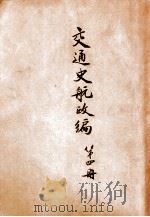 交通史航政編
第四册
mtoou.info